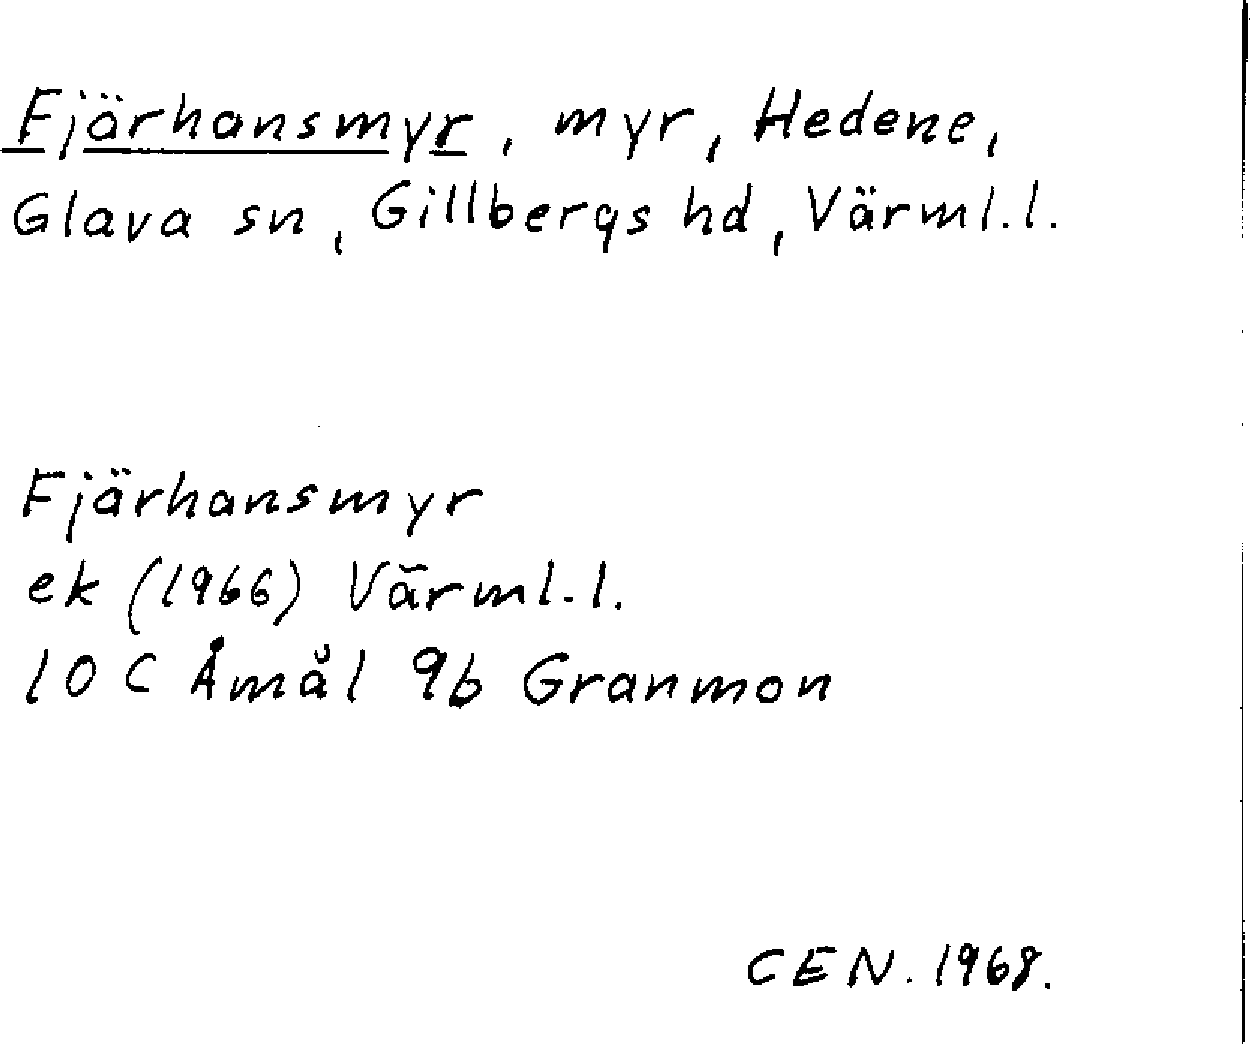 Fjärhansmyr, myr, Hedene,
Glava sn, Gillbergs hd, Värml.l.
Fjärhansmyr
ek (1966) Värml.l.
10 C Åmål 9b Granmon
CEN. 1968.